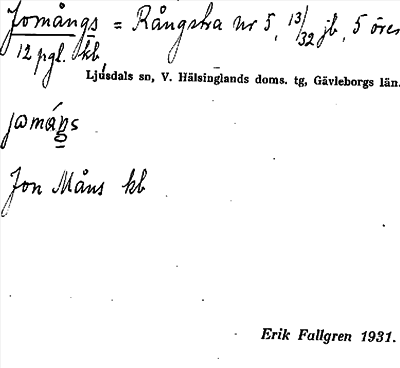 Jomångs = Rångstra nr 5, 13/32 jb, 5 öres
12 pgl. kb
Ljusdals sn, V. Hälsinglands doms. tg, Gävleborgs län.
Jon Måns kb
Erik Fallgren 1931.